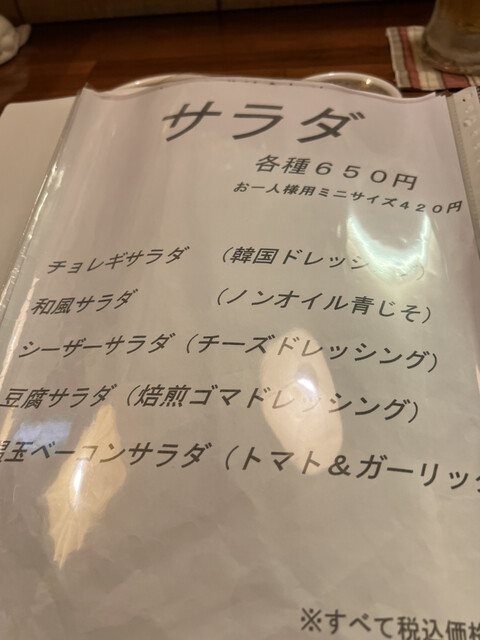 サラダ
各種６５０円
お一人様用ミニサイズ４２０円
チョレギサラダ （韓国ドレッシング）
和風サラダ （ノンオイル青じそ）
シーザーサラダ（チーズドレッシング）
豆腐サラダ（焙煎ゴマドレッシング）
温玉ベーコンサラダ（トマト＆ガーリック
※すべて税込価格